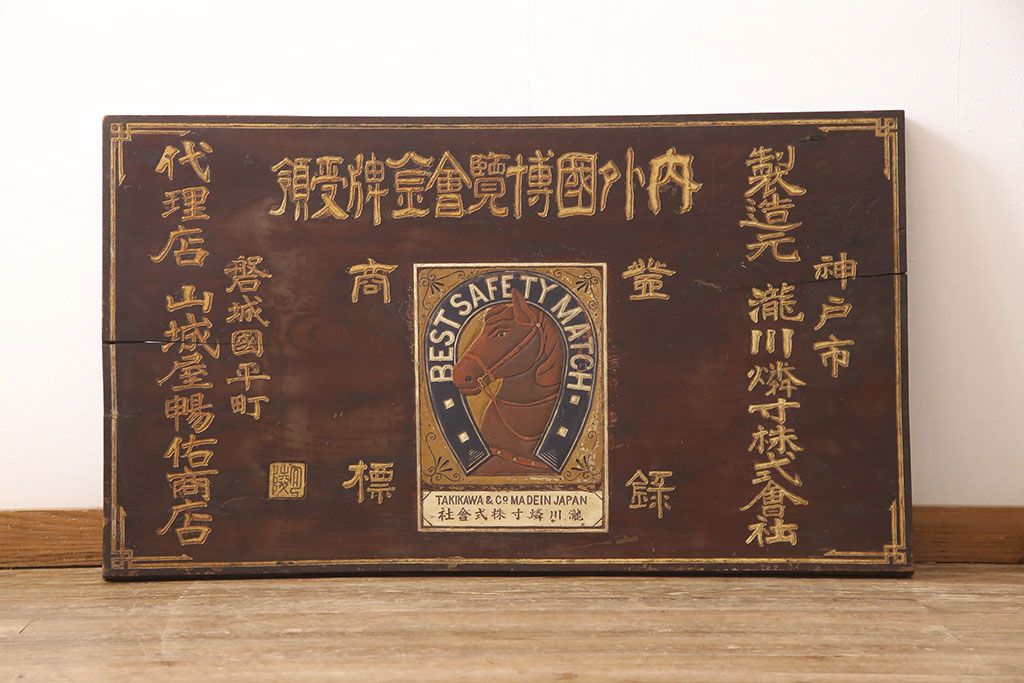 内外國博覽會金牌受領
神戸市
製造元 瀧川燐寸株式會社
登録
商標
BEST SAFETY MATCH
TAKIKAWA & CO. MADE IN JAPAN
瀧川燐寸株式會社
磐城國平町
代理店 山城屋暢佑商店